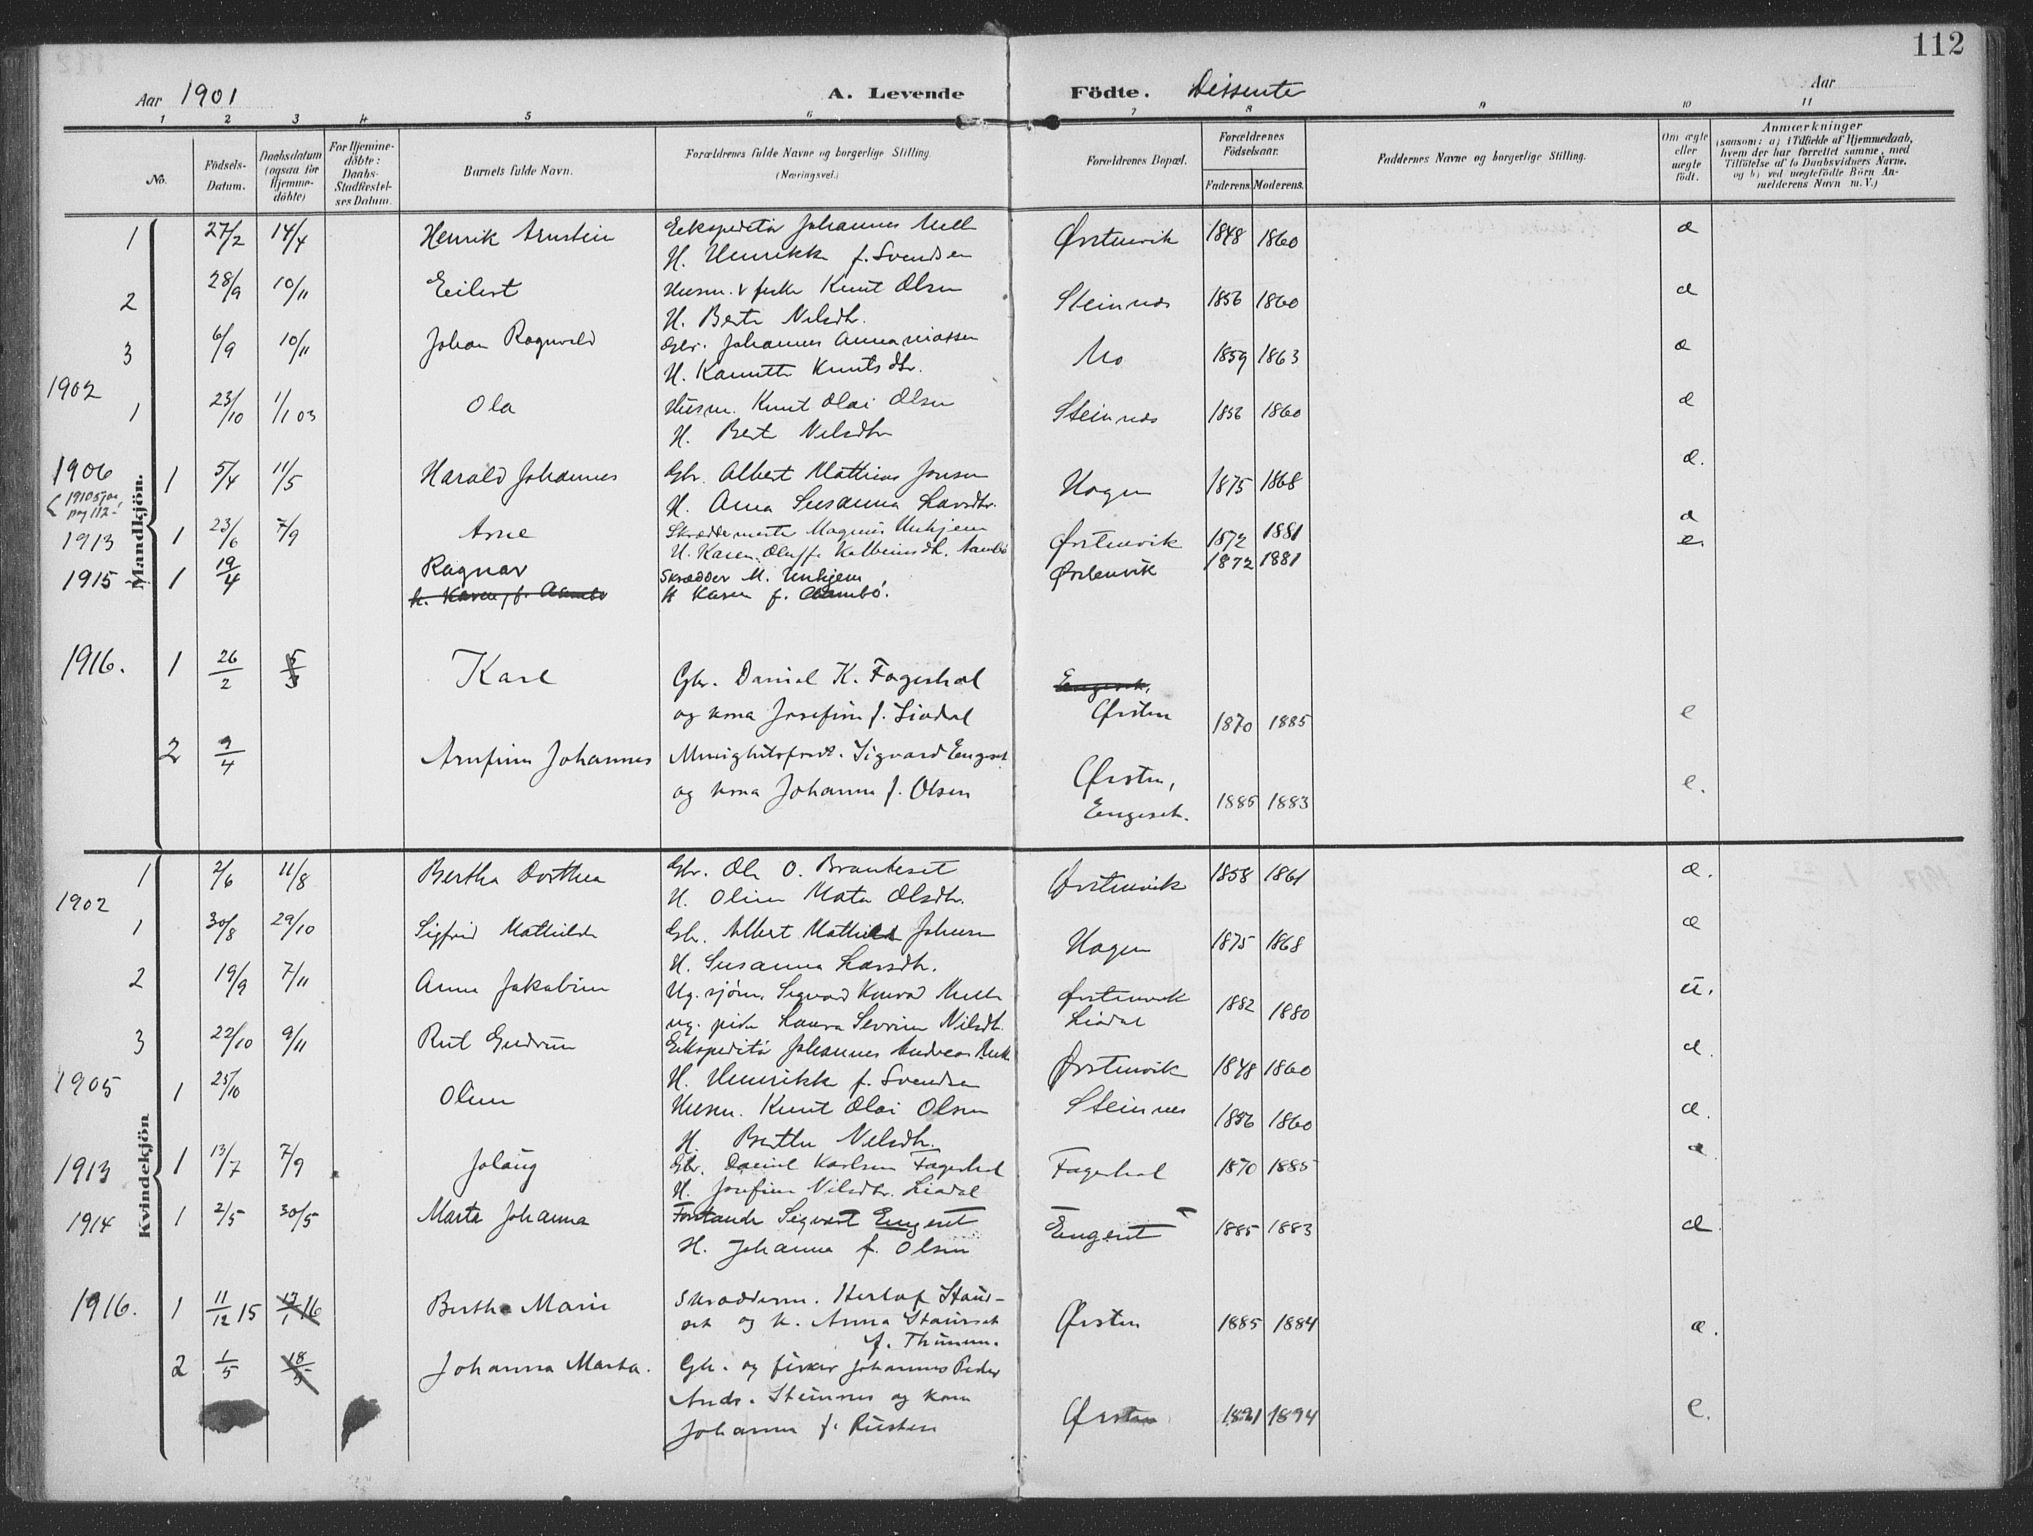 112
Aar 1901 A. Levende Födte. Dissente Aar
1 2 3 4 5 6 7 8 9 10 11
No.
Födsels-Datum.
Daabsdatum (ogsaa för Hjemmedöbte)
For Hjemmedöbte: Daabs-Stadfæstelses Datum.
Barnets fulde Navn.
Forældrenes fulde Navne og borgerlige Stilling. (Næringsvei.)
Forældrenes Bopæl.
Forældrenes Födselsaar.
Faderens. Moderens.
Faddernes Navne og borgerlige Stilling.
Om ægte eller uægte födt.
Anmærkninger
(saasom: a) i Tilfælde af Hjemmedaab, hvem der har forrettet samme, med Tilföielse af to Daabsvidners Navne, og b) ved uægtefödte Börn Anmelderens Navn m. V.)
Mandkjön.
1 27/2 14/4 Henrik Arnstein Ekspeditör Johannes Velle Ørstenvik 1848 1860 æ
H. Henrikke f. Svendsen
2 28/9 10/11 Eilert Husm. & fisker Knut Olsen Steinnes 1856 1860 æ
H. Berte Nilsdtr.
3 6/9 10/11 Johan Ragnvald Gbr. Johannes Annaniassen Mo 1859 1863 æ
H. Kanutte Knutsdtr.
1902
1 23/10 1/1 03 Ola Husm. Knut Olai Olsen Steinnes 1856 1860 æ
H. Berte Nilsdtr
1906 1 5/4 11/5 Harald Johannes Gbr. Albert Mathias Jonsen Hagen 1875 1868 æ.
pag 112- H. Anna Susanna Larsdtr.
1913 1 23/6 7/9 Arne Skræddermester Magnus Unhjem Ørstenvik 1872 1881 æ
H. Karen Aambö
1915 1 19/4 Ragnar Skrædder M. Unhjem Ørstenvik 1872 1881 e.
h. Karen, f. Aambö H Karen f. Aambö.
1916. 1 26/2 5/3 Karl Gbr. Daniel K. Fagerhol Engeset,
og kona Josefine f. Liadal Ørsten 1870 1885 e
2 9/4 Arnfinn Johannes Sigvard Engeset Ørsten,
og kona Johanna f. Olsen Engeset. 1885 1883 e.
Kvindekjön
1 2/6 11/8 Bertha Dorthea Gbr. Ole O. Brauteset Ørstenvik 1858 1861 æ.
H. Oline Mata Olsdtr.
1902
1 30/8 29/10 Sigfrid Mathilde Gbr. Albert Mathias Johnsen Hagen 1875 1868 æ
H. Susanna Larsdtr.
2 19/9 7/11 Anna Jakobine Ug. sjöm. Sigvard Konrad Velle Ørstenvik 1882 1880 u.
ug. pike Laura Severine Nilsdtr. Liadal
3 22/10 9/11 Rut Gudrun Ekspeditör Johannes Andreas Velle Ørstenvik 1848 1860 æ.
H. Henrikke f. Svendsen
1905 1 25/10 Oline Husm. Knut Olai Olsen Steinnes 1856 1860 æ.
H. Berthe Nilsdtr.
1913 1 13/7 7/9 Jolaug Gbr. Daniel Karlsen Fagerhol Fagerhol 1870 1885 æ
H. Josefine Nilsdtr. Liadal
1914 1 2/5 30/5 Marta Johanna Forstander Sigvart Engeset Engeset 1885 1883 æ
H. Johanna f. Olsen
1916. 1 11/12 15 17/1 16 Berthe Marie Skrædderm. Herlof Staur-
set og k. Anna Staurset Ørsten 1885 1884 æ.
f. Thunem.
2 1/5 18/5 Johanna Marta. Gbr. og fisker Johannes Peder
Ands. Steinnes og kona
Johanna f. Rusten Ørsten 1891 1894 e.